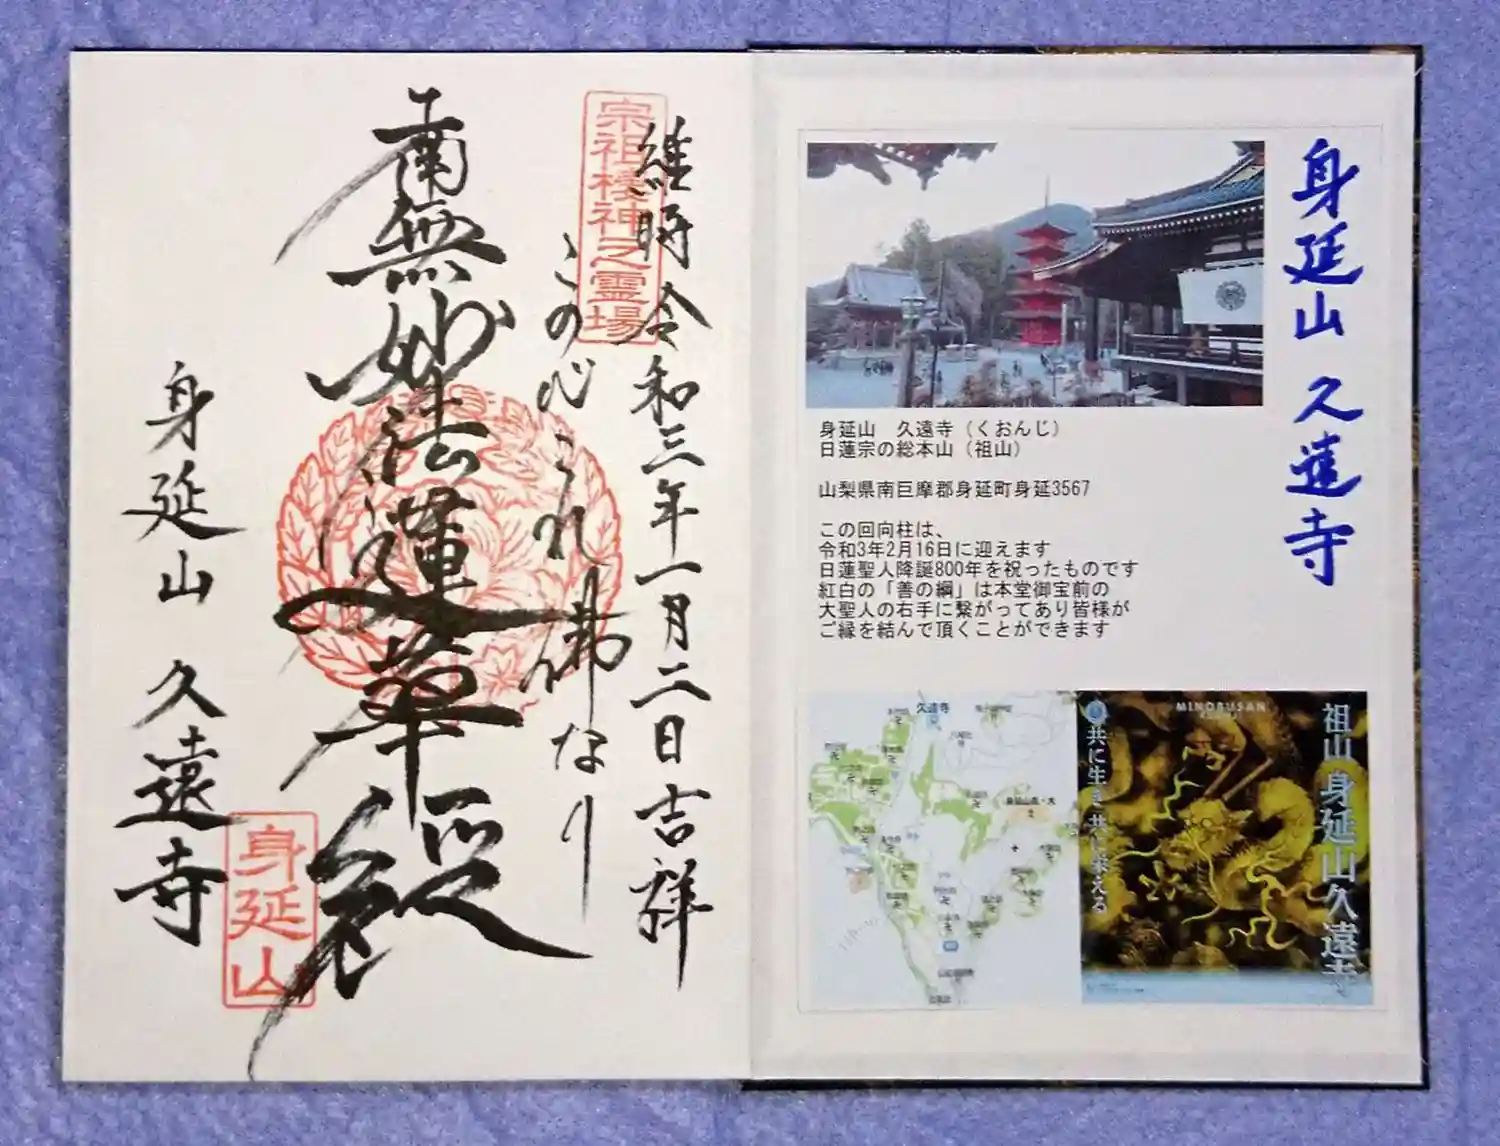 維時令和三年一月二日吉祥
宗祖棲神之霊場
このこころ
これ
佛なり
南無妙法蓮華経
身延山 久遠寺
身延山
身延山 久遠寺
身延山 久遠寺（くおんじ）
日蓮宗の総本山（祖山）
山梨県南巨摩郡身延町身延3567
この回向柱は、
令和3年2月16日に迎えます
日蓮聖人降誕800年を祝ったものです
紅白の「善の綱」は本堂御宝前の
大聖人の右手に繋がってあり皆様が
ご縁を結んで頂くことができます
久遠寺
MINOBUSAN
祖山 身延山久遠寺
共に生き 共に栄える